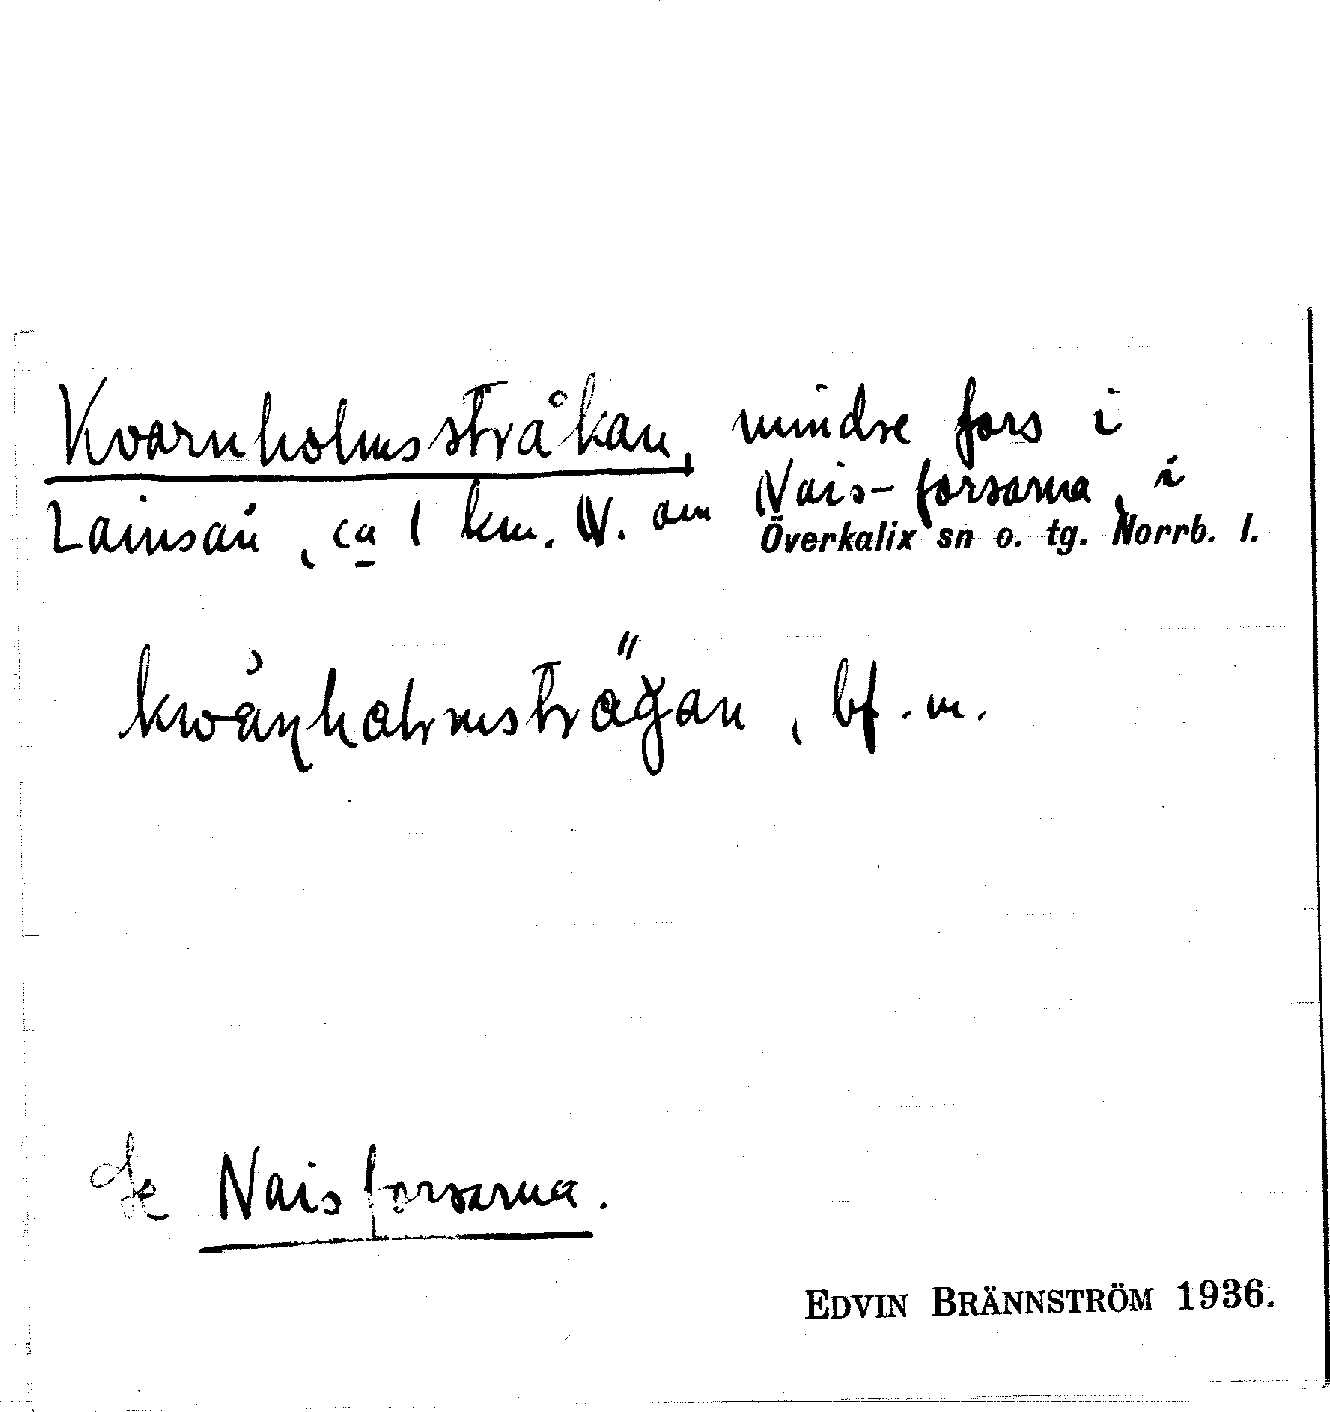 Kvarnholmsstråkan, mindre fors i
Lainsån, ca 1 km. N. om Nais-forsarna, i
Överkalix sn o. tg. Norrb. l.
bf. m.
Se Naisforsarna.
EDVIN BRÄNNSTRÖM 1936.